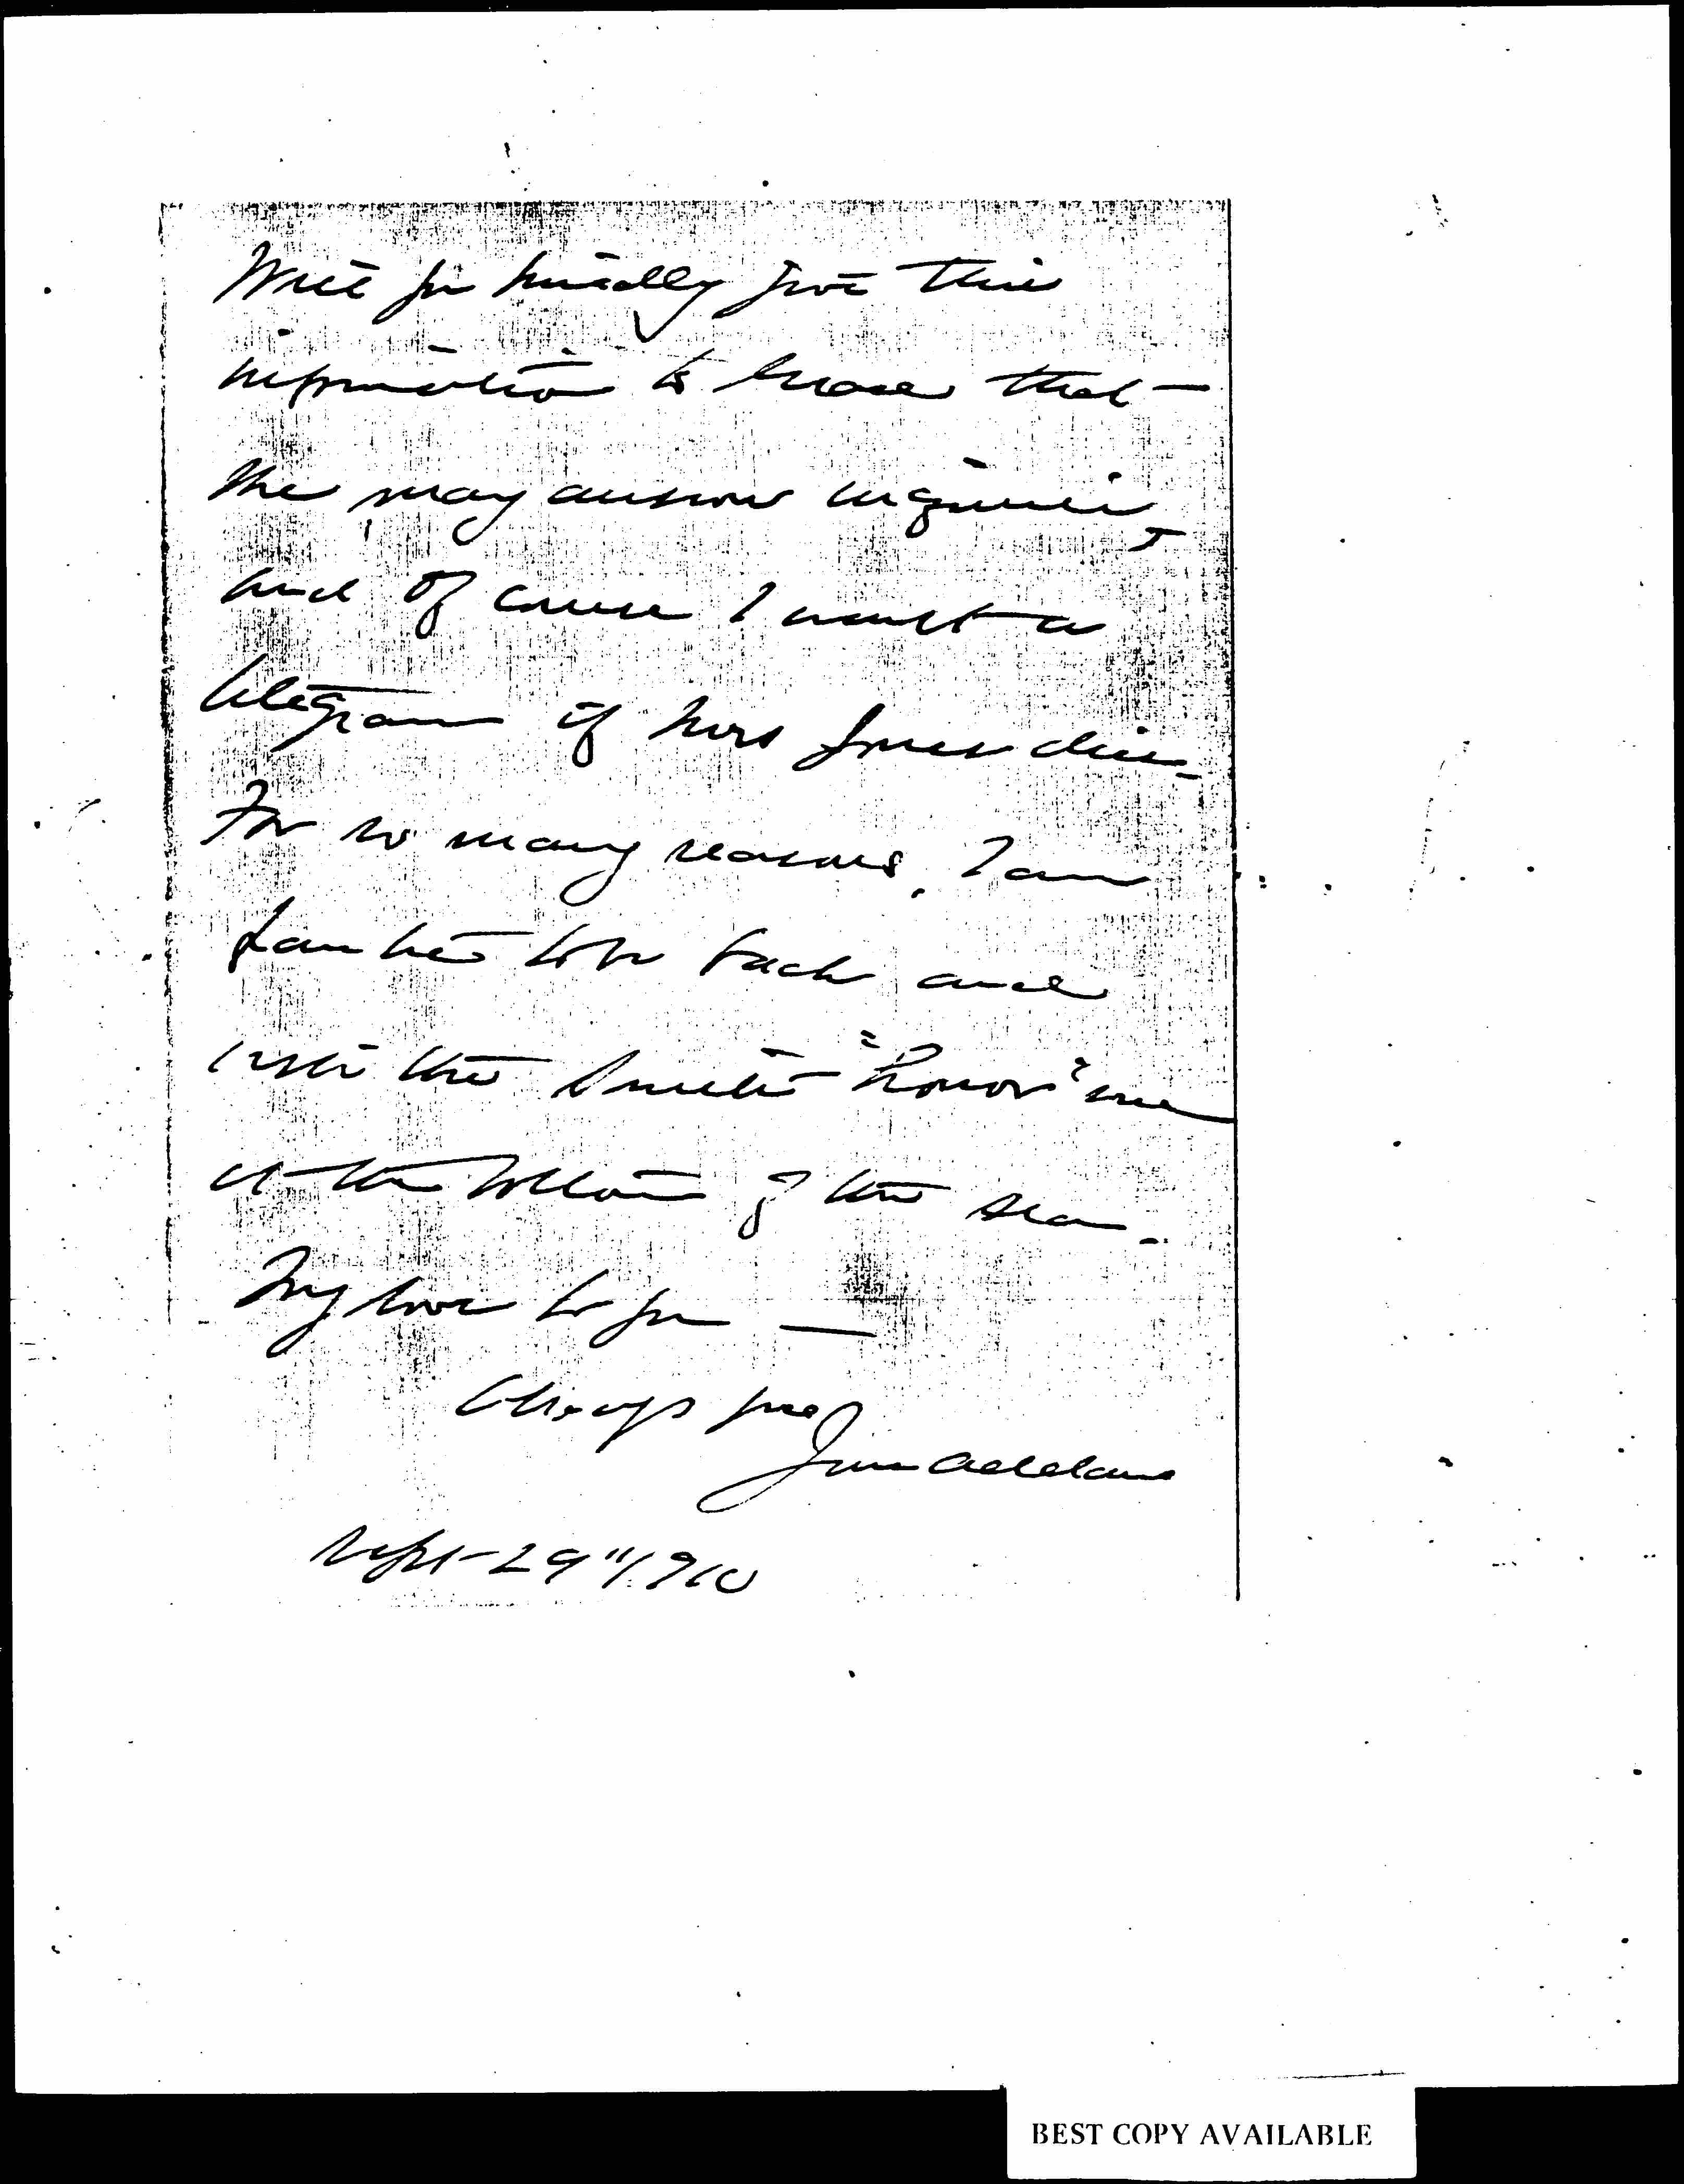 Will you kindly give this
information to            that
she may answer inquiries
and of course I want a
telegram if Mrs Jones dies
For so many reasons, I am
            to be back and
wish the            "honor" me
at the bottom of the sea.
My love to you —
Always yrs
Jane Addams
Sept 29" 1910
BEST COPY AVAILABLE